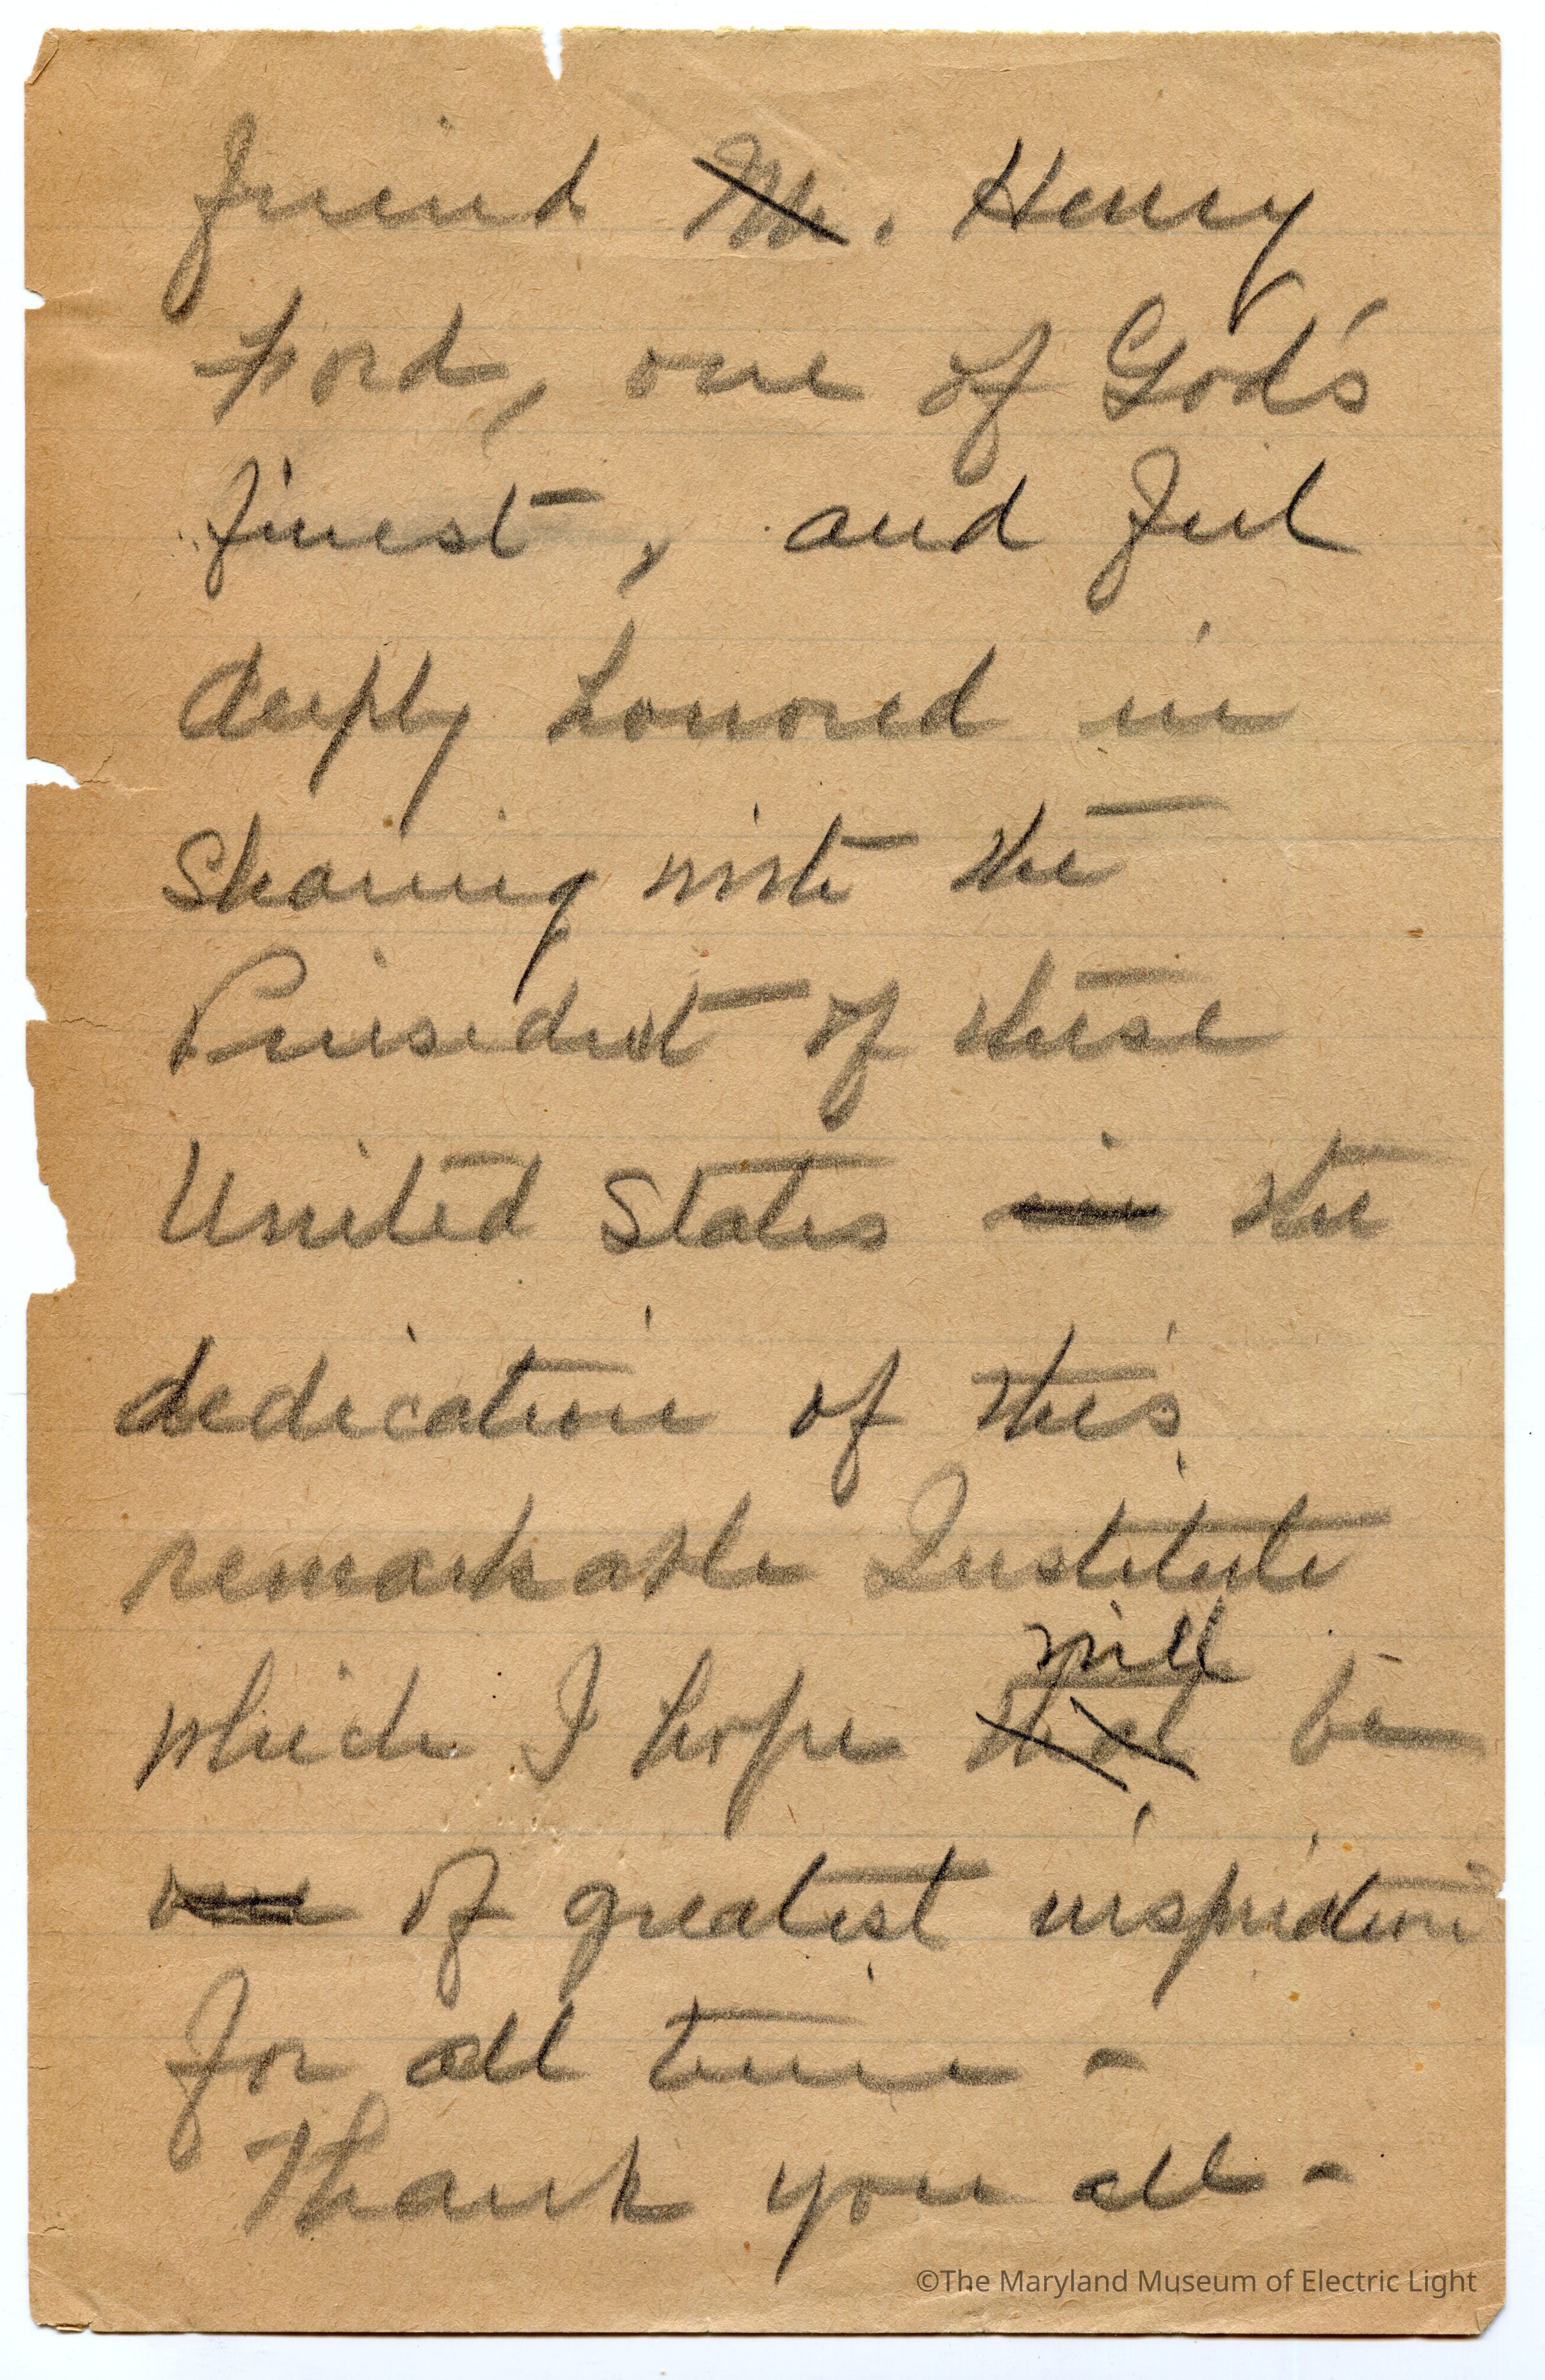 friend Mr. Henry
Ford, one of God's
finest, and feel
deeply honored in
sharing with the
President of these
United States in the
dedication of this
remarkable Institute
will
which I hope that be
one of greatest inspiration
for all time -
Thank you all -
©The Maryland Museum of Electric Light